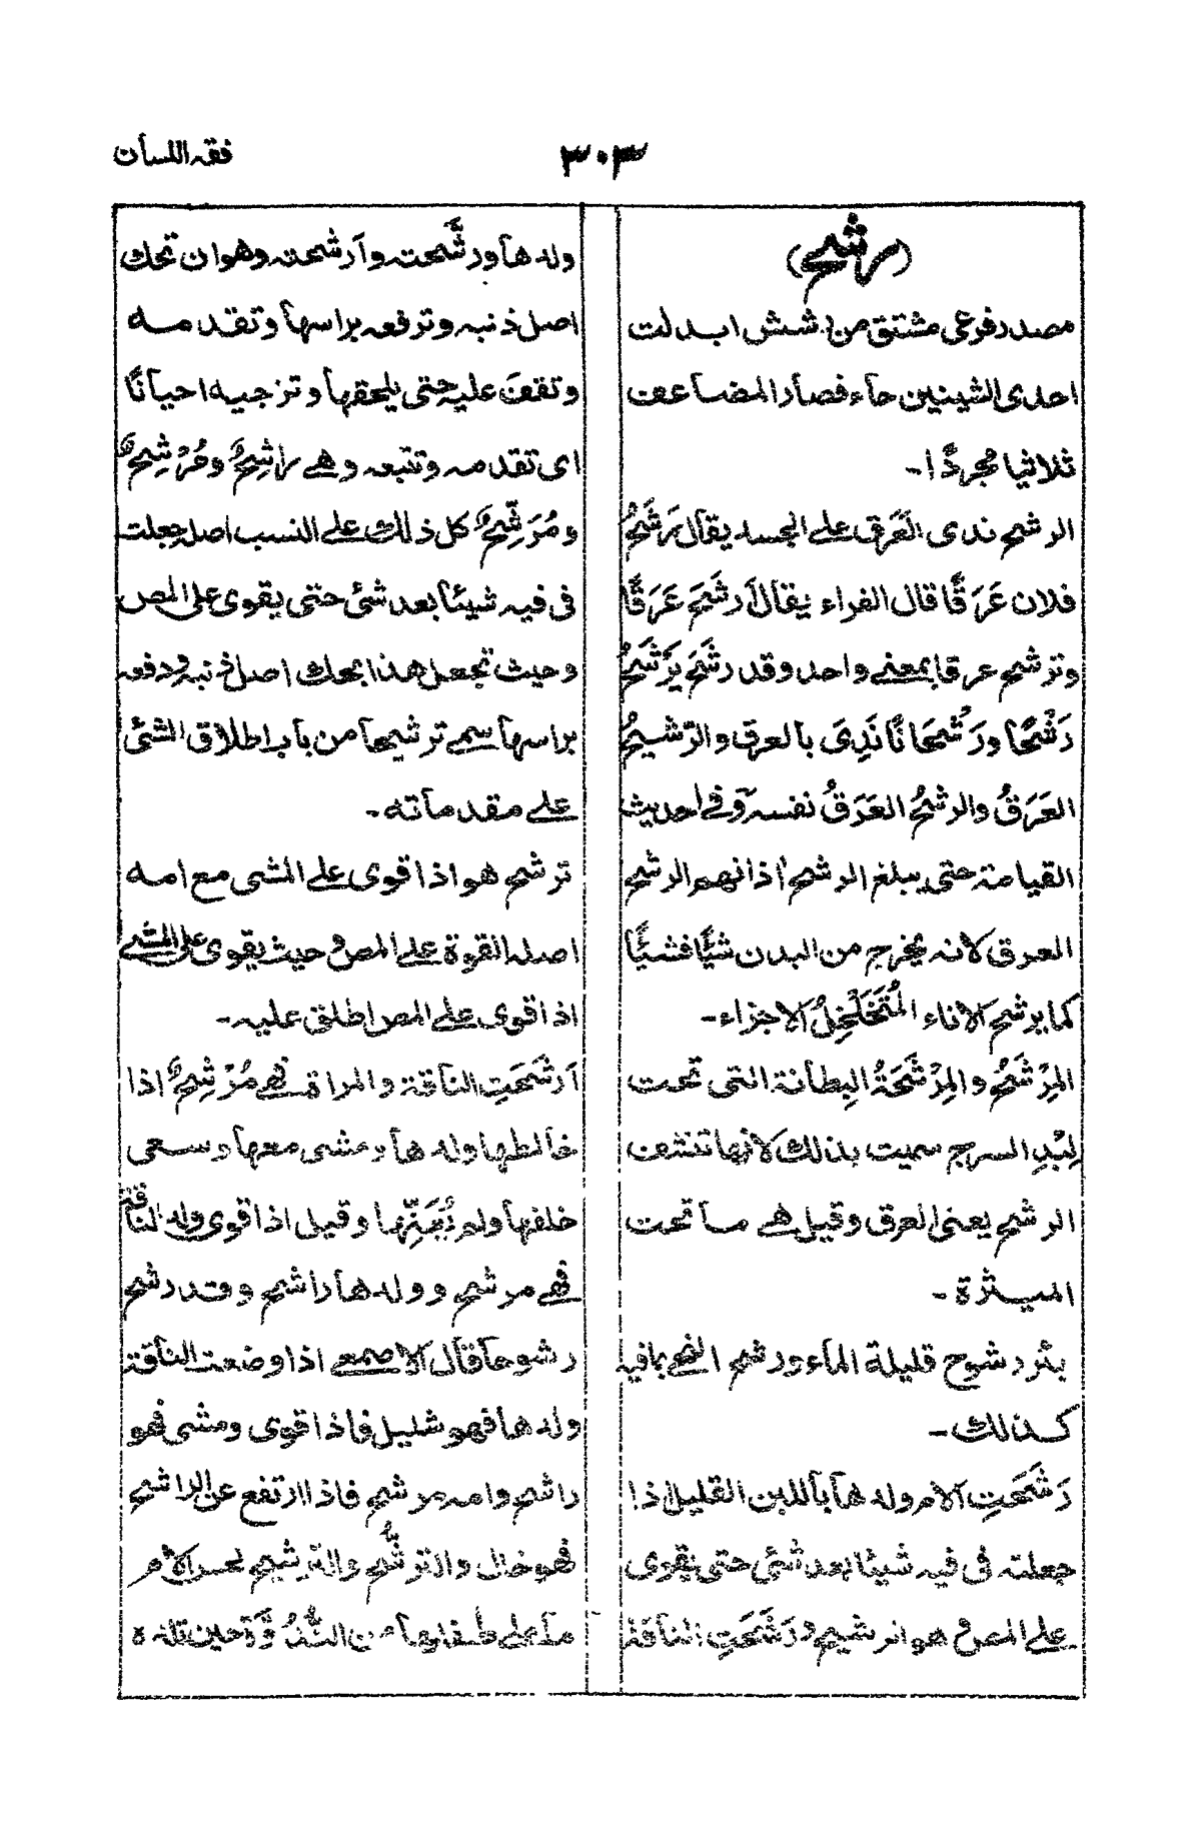 فقه اللسان
٣٠٣
(رشح)
مصدر فرعی مشتق من رشش ابدلت
احدی الشینین حاء فصار المضاعف
ثلاثیا مُجردًا۔
الرشح ندی العَرَق علی الجسد یقال رَشَحَ
فلان عَرَقًا قال الفراء یقال اَرشَحَ عَرَقًا
وترشح عرقا بمعنی واحد وقد رشَحَ یَرْشَحُ
رَشْحًا ورَشْحَانًا نَدِیَ بالعرق والرّشیحُ
العَرَقُ والرشحُ العَرَقُ نفسه وفی احدیث
القیامة حتی یبلغ الرشح اٰذانهم الرشح
العرق لانه یخرج من البدن شیًٔا فشیًٔا
کما یرشح الاناء المُتَخَلْخِلُ الاجزاء۔
المِرْشَحُ والمِرْشَحَةُ البِطانة التی تحت
لِبْدِ السرج سمیت بذلك لانها تنشف
الرشح یعنی العرق وقیل هی ما تحت
المیثرة۔
بئر رشوح قلیلة الماء ورشح النحی بما فیه
کذلك۔
رَشَّحَتِ الام ولدها باللبن القلیل اذا
جعلته فی فیه شیئا بعد شئی حتی یقوی
علی المص وهو الترشیح ورَشَّحَتِ الناقة
ولدها ورشَّحته واَرشحته وهو ان تحك
اصل ذنبه وترفعه براسها وتقدمه
وتقف علیه حتی یلحقها وتزجیه احیانًا
ای تقدمه وتتبعه وهی راشِحٌ ومُرْشِحٌ
ومُرَشِّحٌ کل ذلك علی النسب اصل جعلت
فی فیه شیئا بعد شئ حتی یقوی علی المص
وحیث تجعل هذا بحك اصل ذنبه ودفعه
براسها سمی ترشیحا من باب اطلاق الشئی
علی مقدماته۔
ترشح هو اذا قوی علی المشی مع امه
اصله القوة علی المص وحیث یقوی علی المشی
اذا قوی علی المص اطلق علیه۔
اَرشَحَتِ الناقة والمراة فهی مُرْشِحٌ اذا
خالطها ولدها ومشی معها وسعی
خلفها ولم یُعَنِّها وقیل اذا قوی ولد الناقة
فهی مرشح وولدها راشح وقد رشح
رشوحا قال الاصمعی اذا وضعت الناقة
ولدها فهو شلیل فاذا قوی ومشی فهو
راشح وامه مرشح فاذا ارتفع عن الراشح
فهو خال والترشُّح والترشیح لحس الام
ما علی طفلها من النُّدُوَّة حین تلده